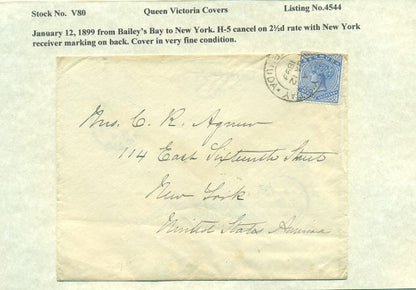 Stock No. V80 Queen Victoria Covers Listing No.4544
January 12, 1899 from Bailey's Bay to New York. H-5 cancel on 2½d rate with New York
receiver marking on back. Cover in very fine condition.
Mrs. C. R. Agnew
114 East Sixteenth Street
New York
United States America